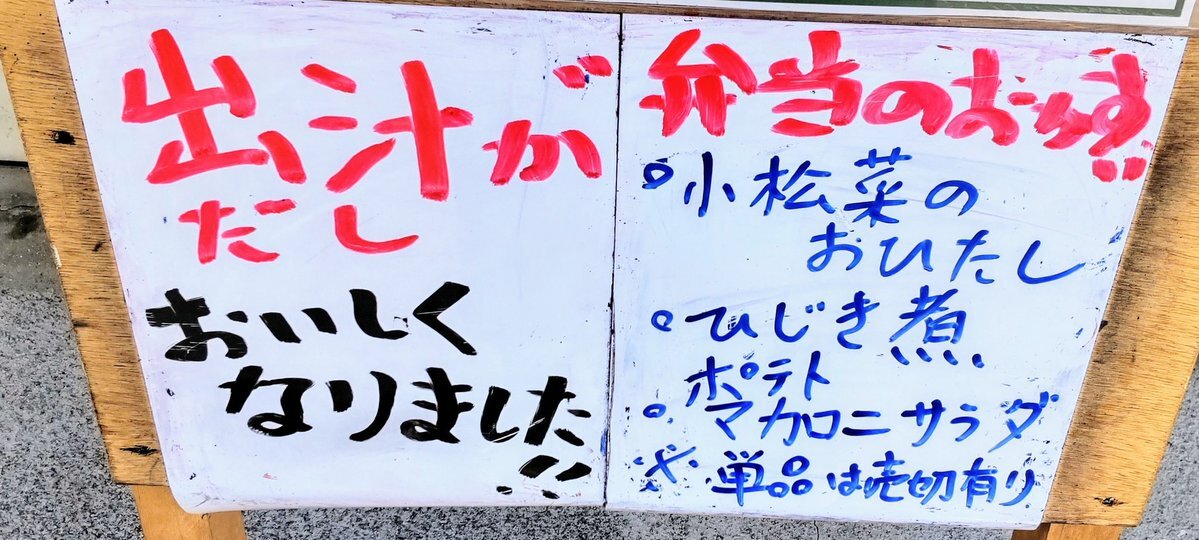 出汁が
だし
おいしく
なりました!!
弁当のおかず!!
・小松菜の
おひたし
・ひじき煮
ポテト
・マカロニサラダ
※単品は売切有り